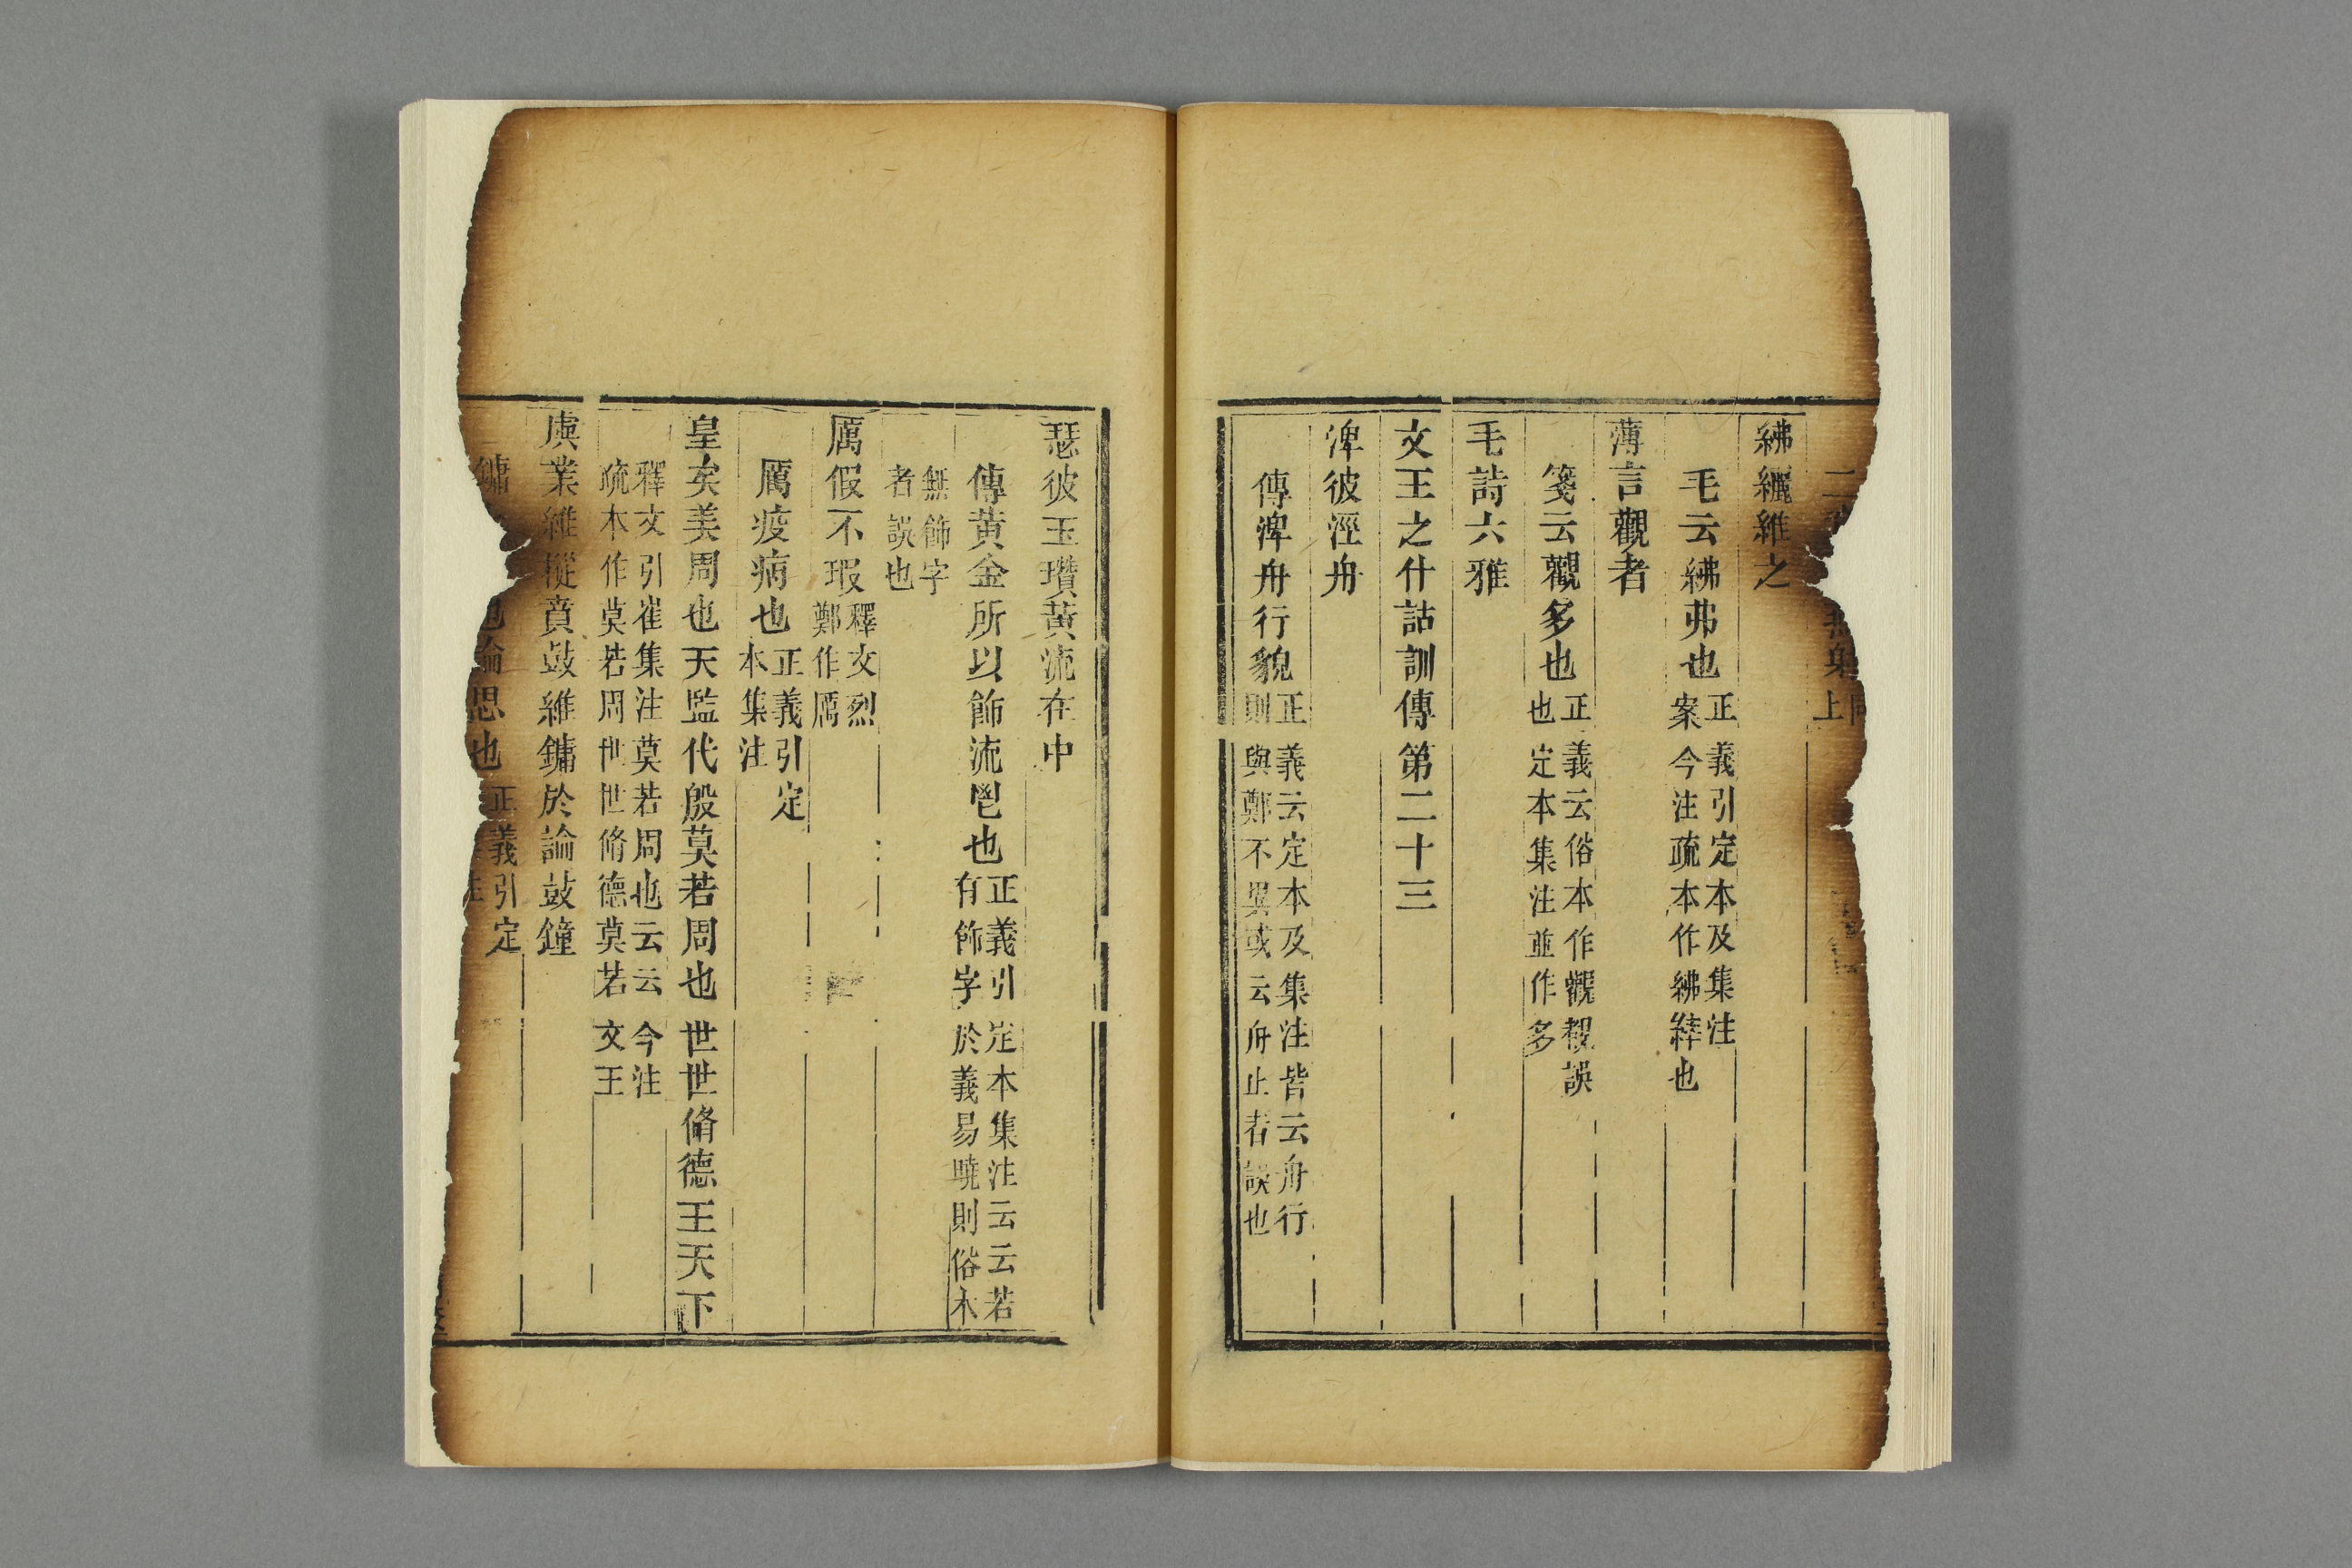 二
上
紼纚維之
毛云紼弗也正義引定本及集注
案今注疏本作紼繂也
薄言觀者
箋云觀多也正義云俗本作觀覩誤
也定本集注並作多
毛詩六雅
文王之什詁訓傳第二十三
淠彼涇舟
傳淠舟行貌正義云定本及集注皆云舟行
則與鄭不異或云舟止者誤也
瑟彼玉瓚黃流在中
傳黃金所以飾流鬯也正義引定本集注云云若
有飾字於義易曉則俗本
無飾字
者誤也
厲假不瑕釋文烈
鄭作厲
厲疫病也正義引定
本集注
皇矣美周也天監代殷莫若周也世世脩德王天下
釋文引崔集注莫若周也云云今注
疏本作莫若周世世脩德莫若文王
虡業維樅賁鼓維鏞於論鼓鐘
鏞也論思也正義引定
注